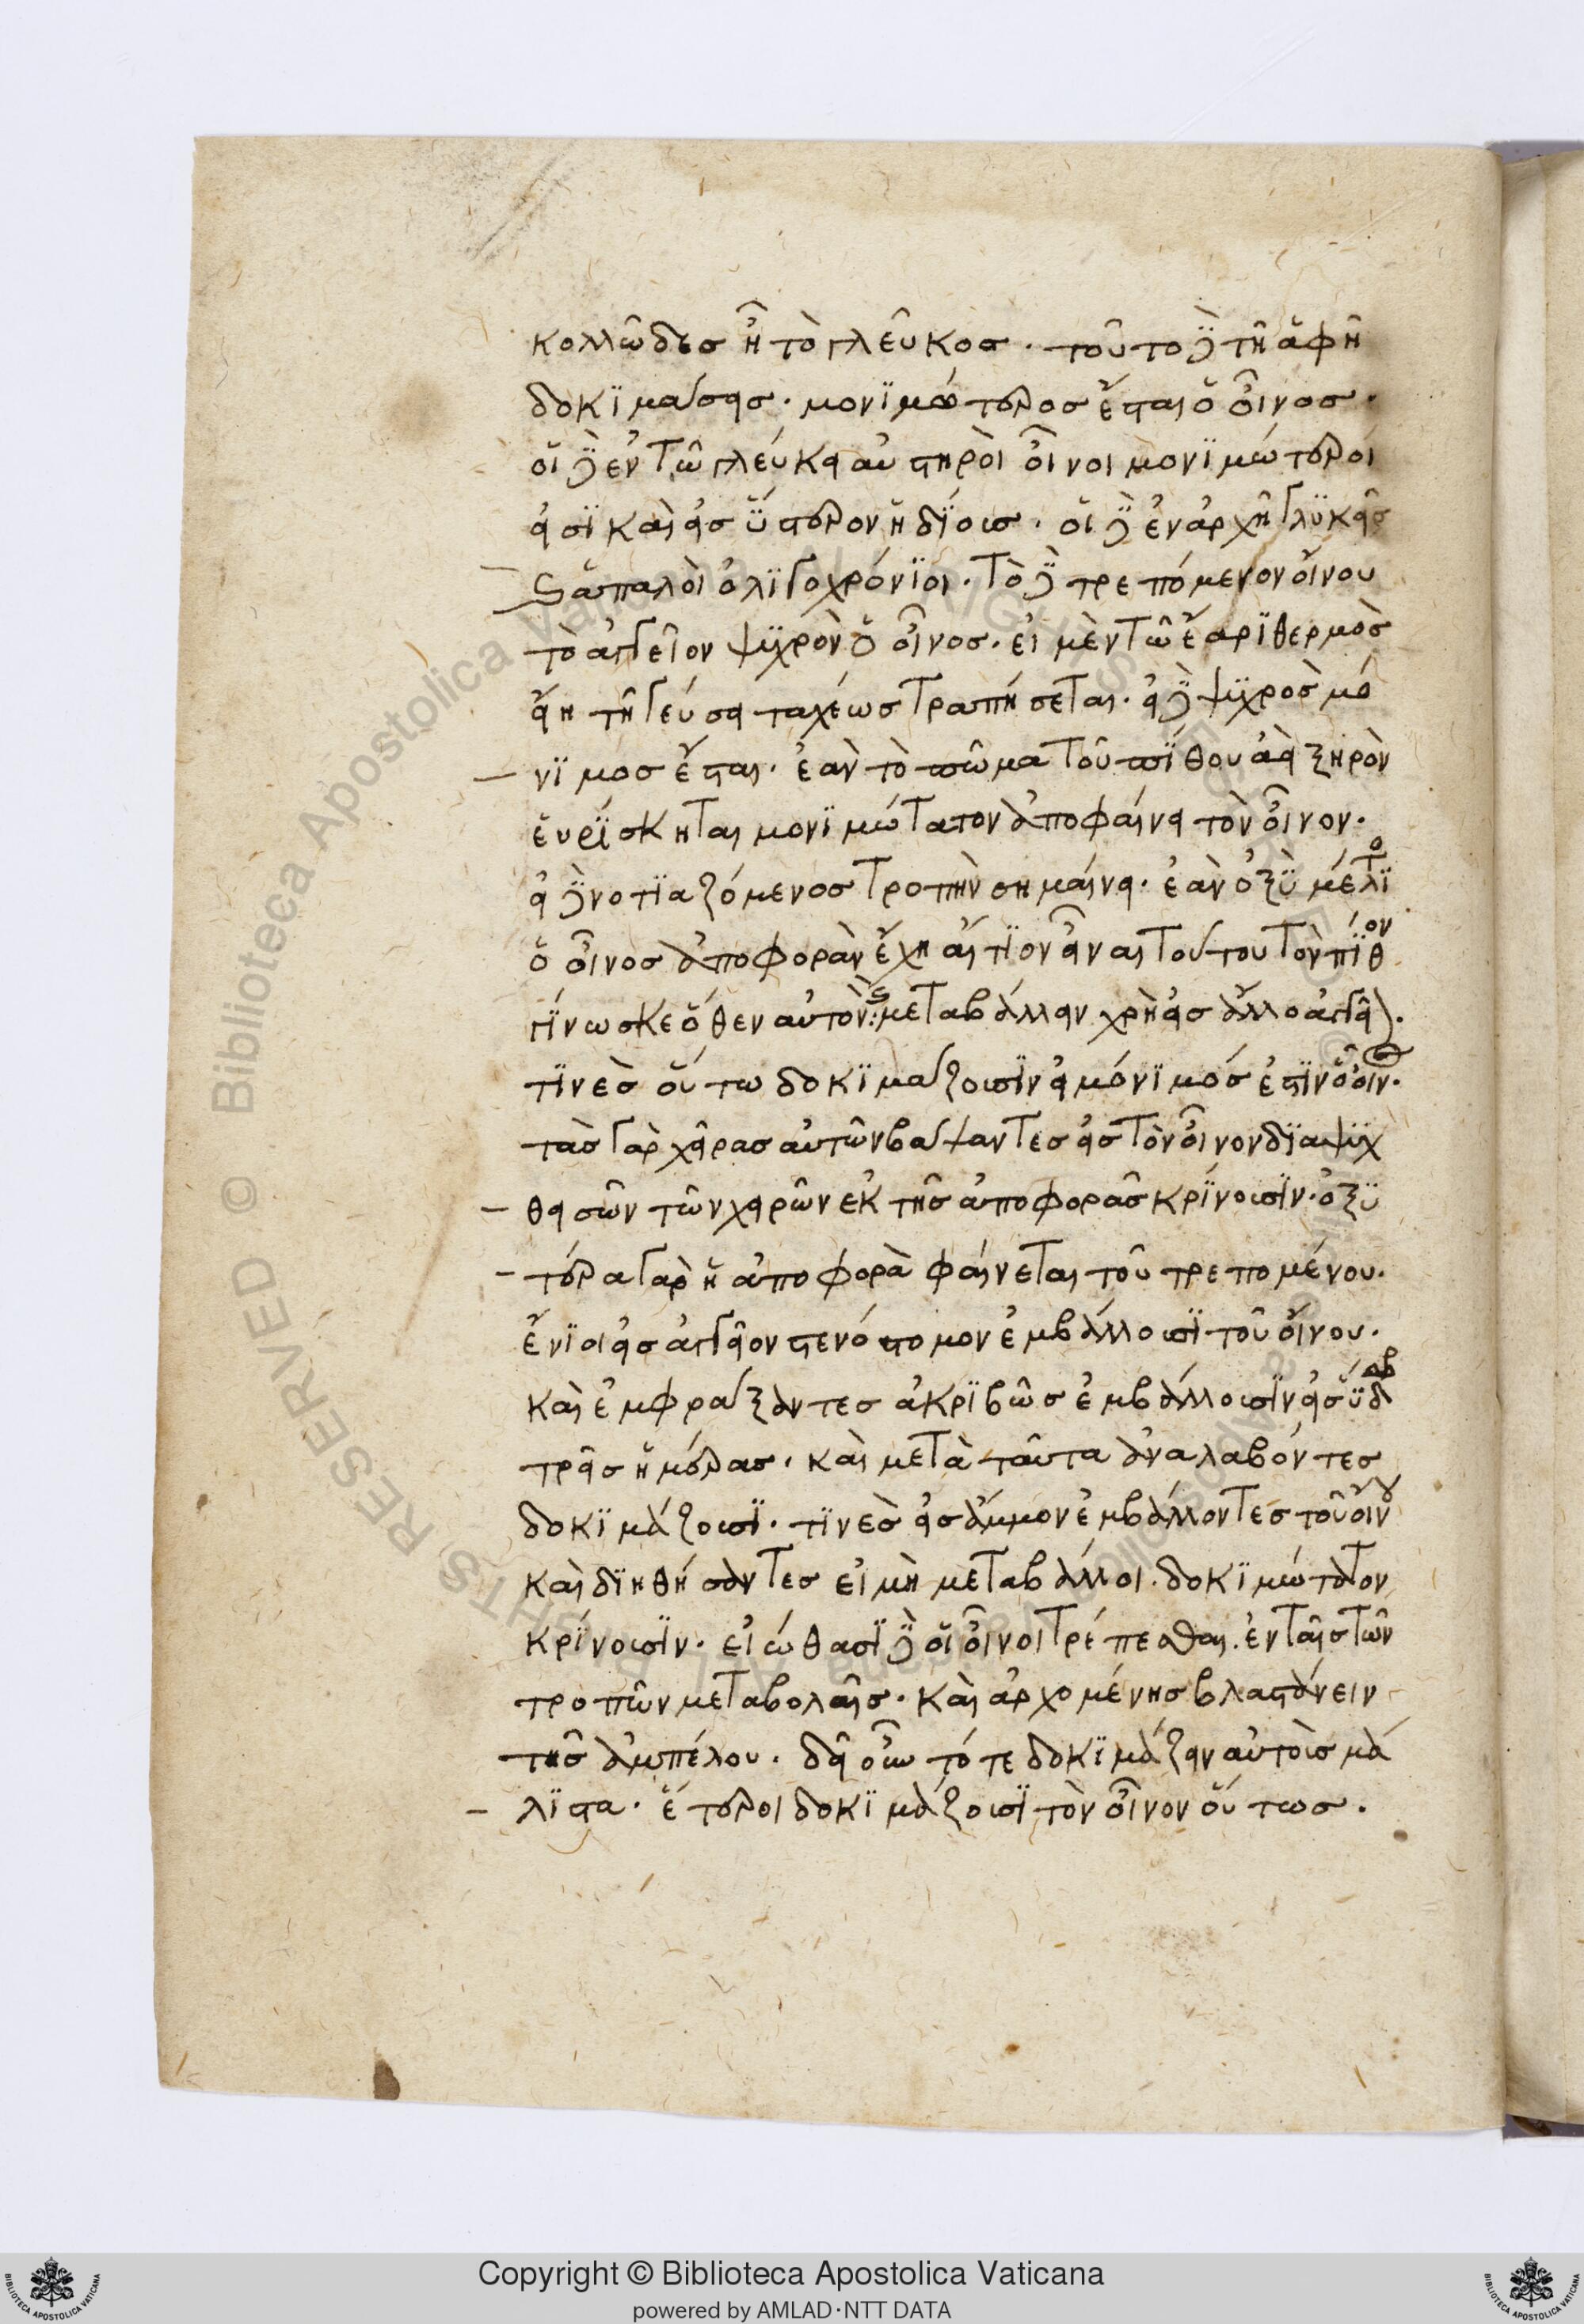 κολλῶδες ἦ τὸ γλεῦκος. τοῦτο δὲ τῇ ἁφῇ
δοκϊμάσεις. μονϊμώτερος ἔσται ὁ οἶνος.
οἱ δὲ ἐν τῷ γλεύκει αὐστηρὸι οἶνοι μονϊμώτεροί
εἰσϊ καὶ εἰς ὕστερον ἡδΐους. οἱ δὲ ἐν ἀρχῇ γλϋκεῖς
καὶ ἁπαλὸι ὀλϊγοχρόνϊοι. τὸ δὲ τρεπόμενον οἴνου
τὸ ἀγγεῖον ψϋχρὸν ὁ οἶνος. εἰ μὲν τῷ ἔαρϊ θερμὸς
εἴη τῇ γεύσει ταχέως τραπήσεται. εἰ δὲ ψϋχρὸς μό
νϊμος ἔσται. ἐὰν τὸ πῶμα τοῦ πΐθου ἀεὶ ξηρὸν
εὑρΐσκηται μονϊμώτατον ἀποφαίνει τὸν οἶνον.
εἰ δὲ νοτϊαζόμενος τροπὴν σημαίνει. ἐὰν ὀξϋμέλϊτο
ὁ οἶνος ἀποφορὰν ἔχη αἴτϊον εἶναι τούτου τὸν πΐθον
γΐνωσκε ὅθεν αὐτὸν καὶ μεταβάλλειν χρὴ εἰς ἄλλο ἀγγεῖον.
τϊνὲς οὕτω δοκϊμάζουσϊν εἰ μόνϊμός ἐστϊν ὁ οἶνος.
τὰς γὰρ χεῖρας αὐτῶν βάψαντες εἰς τὸν οἶνον δϊαψϋχ
θεισῶν τῶν χειρῶν ἐκ τῆς ἀποφορᾶς κρΐνουσϊν. ὀξϋ
τέρα γὰρ ἡ ἀποφορὰ φαίνεται τοῦ τρεπομένου.
ἔνϊοι εἰς ἀγγεῖον στενόστομον ἐμβάλλουσϊ τοῦ οἴνου.
καὶ ἐμφράξαντες ἀκρϊβῶς ἐμβάλλουσϊν εἰς ὕδωρ
τρεῖς ἡμέρας. καὶ μετὰ ταῦτα ἀναλαβόντες
δοκϊμάζουσϊ. τϊνὲς εἰς ἄμμον ἐμβάλλοντες τοῦ οἴνου
καὶ δϊηθήσαντες εἰ μὴ μεταβάλλοι. δοκϊμώτατον
κρΐνουσϊν. εἰώθασϊ δὲ οἱ οἶνοι τρέπεσθαι. ἐν ταῖς τῶν
τροπῶν μεταβολαῖς. καὶ ἀρχομένης βλαστάνειν
τῆς ἀμπέλου. δεῖ οὖν τότε δοκϊμάζειν αὐτοὺς μά
λϊστα. ἕτεροι δοκϊμάζουσϊ τὸν οἶνον οὕτως.
Copyright © Biblioteca Apostolica Vaticana
powered by AMLAD·NTT DATA